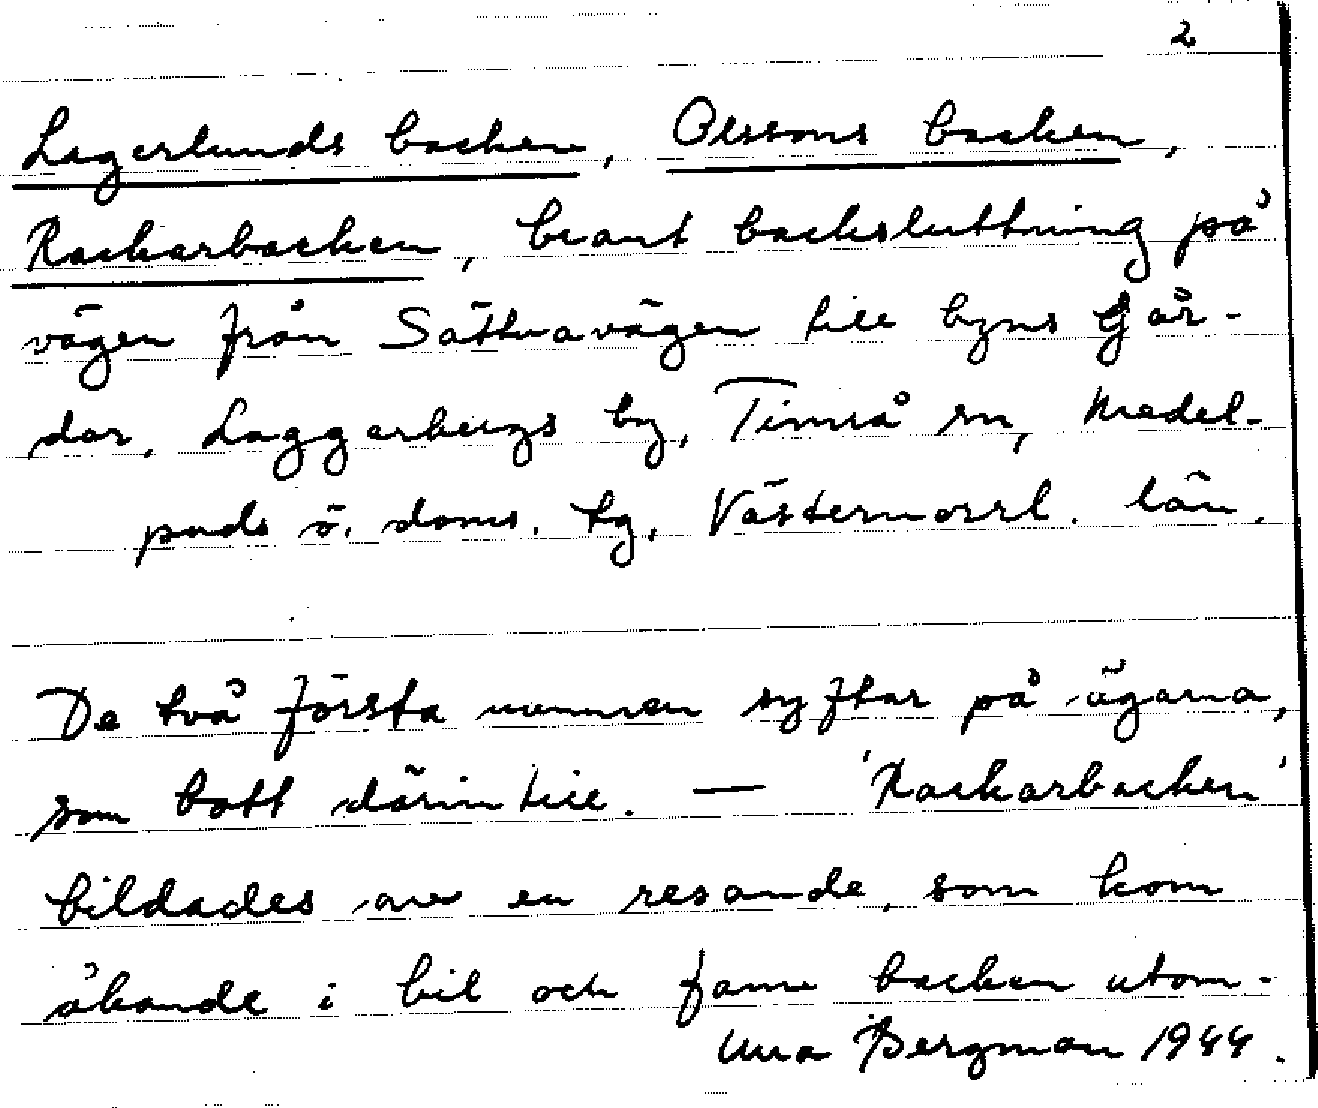 2
Lagerlunds backen, Olssons backen,
Rackarbacken, brant backsluttning på
vägen från Sättnavägen till byns går-
dar, Laggarbergs by, Timrå sn, Medel-
pads ö. doms. tg, Västernorrl. län.
De två första namnen syftar på ägarna,
som bott därintill. — 'Rackarbacken'
bildades av en resande, som kom
åkande i bil och fann backen utom-
Una Bergman 1944.